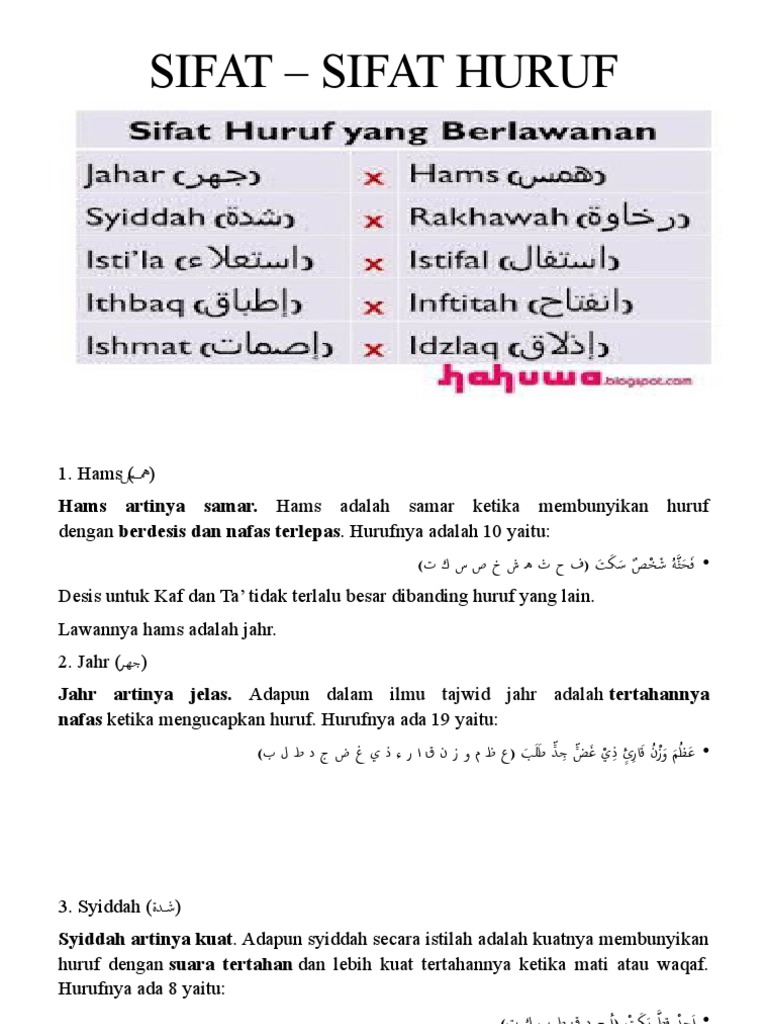 SIFAT – SIFAT HURUF
Sifat Huruf yang Berlawanan
Jahar (جهر) x Hams (همس)
Syiddah (شدة) x Rakhawah (رخاوة)
Isti'la (استعلاء) x Istifal (استفال)
Ithbaq (إطباق) x Inftitah (انفتاح)
Ishmat (إصمات) x Idzlaq (إذلاق)
hahuwa.blogspot.com
1. Hams (همس)
Hams artinya samar. Hams adalah samar ketika membunyikan huruf
dengan berdesis dan nafas terlepas. Hurufnya adalah 10 yaitu:
• فَحَثَّهُ شَخْصٌ سَكَتَ (ف ح ث ه ش خ ص س ك ت)
Desis untuk Kaf dan Ta' tidak terlalu besar dibanding huruf yang lain.
Lawannya hams adalah jahr.
2. Jahr (جهر)
Jahr artinya jelas. Adapun dalam ilmu tajwid jahr adalah tertahannya
nafas ketika mengucapkan huruf. Hurufnya ada 19 yaitu:
• عَظُمَ وَزْنُ قَارِئٍ ذِيْ غَضٍّ جِدٍّ طَلَبَ (ع ظ م و ز ن ق ا ر ء ذ ي غ ض ج د ط ل ب)
3. Syiddah (شدة)
Syiddah artinya kuat. Adapun syiddah secara istilah adalah kuatnya membunyikan
huruf dengan suara tertahan dan lebih kuat tertahannya ketika mati atau waqaf.
Hurufnya ada 8 yaitu: